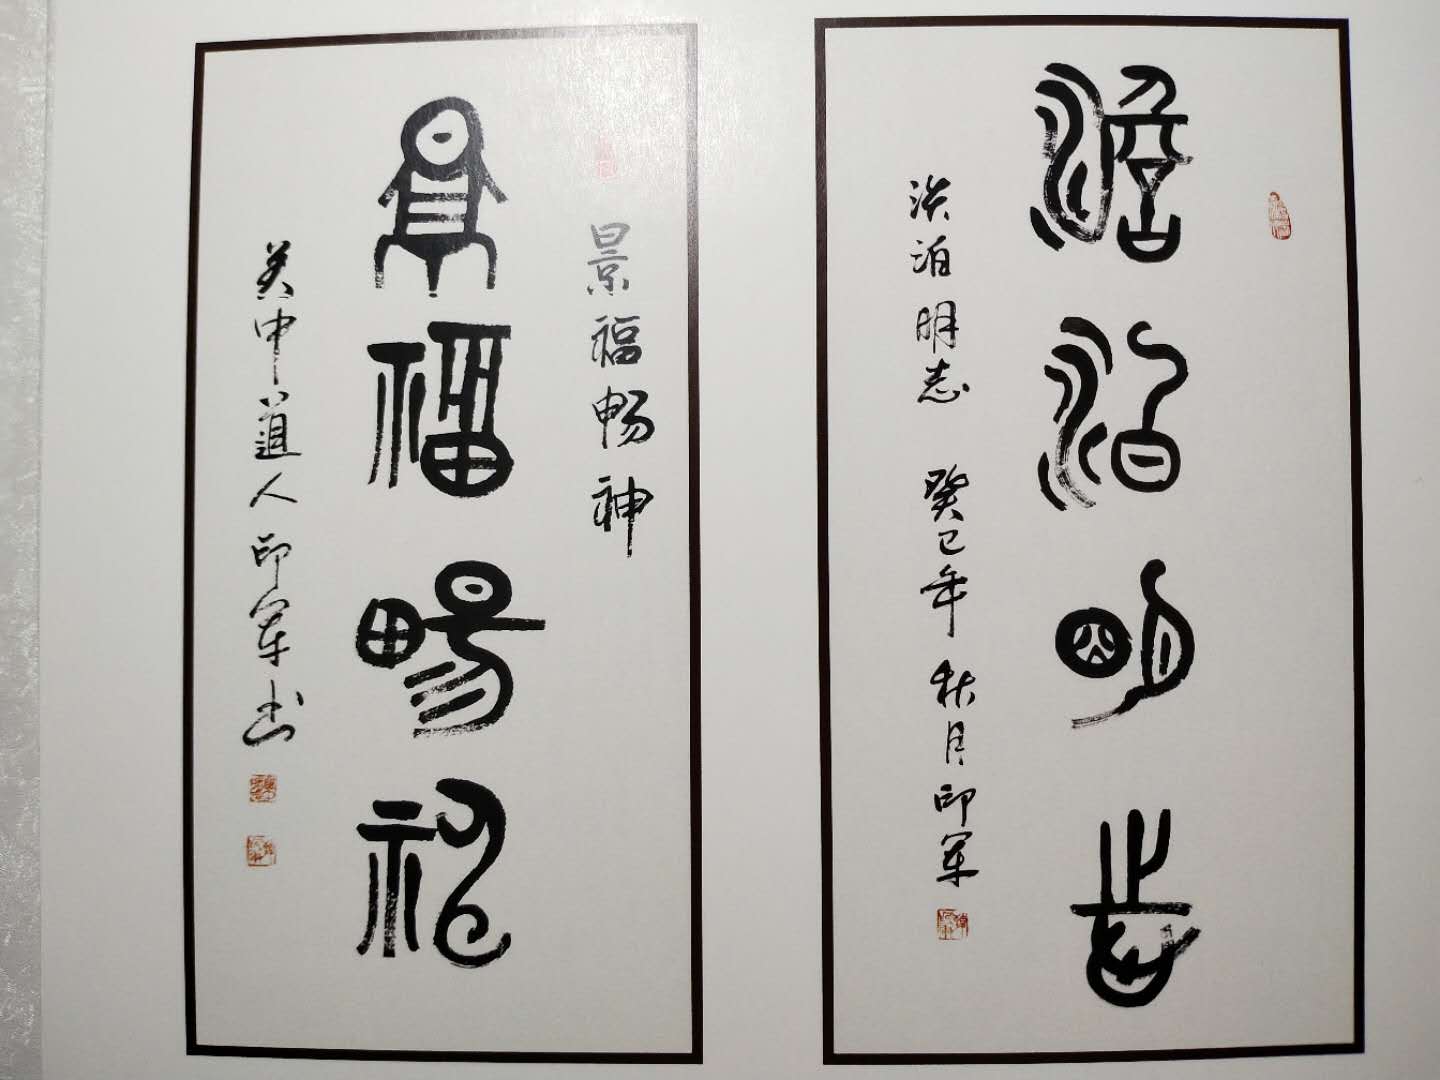 澹泊明志
淡泊明志 癸巳年秋月印军
景福畅神
景福畼神
关中道人印军书